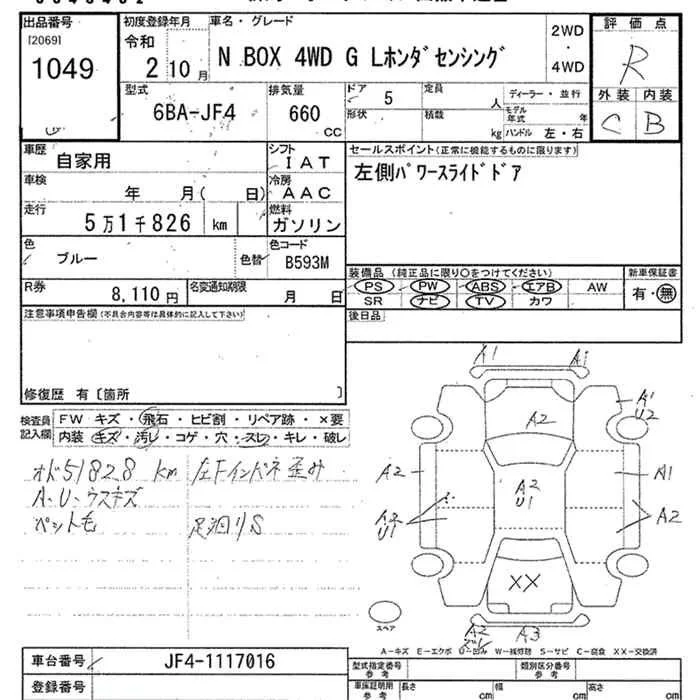 出品番号
[2069]
1049
初度登録年月
令和
2 10 月
車名・グレード
N BOX 4WD G Lホンダセンシング
2WD
・
4WD
評価点
R
外装 内装
C B
型式
6BA-JF4
排気量
660
CC
ドア 5
形状
定員
人
積載
kg
ディーラー・並行
モデル年式 年
ハンドル 左・右
車歴
自家用
シフト
IAT
車検
年 月( 日)
冷房
AAC
走行
5万1千826 km
燃料
ガソリン
色
ブルー
色替
色コード
B593M
R券
8,110円
名変通知期限
月 日
セールスポイント(正常に機能するものに限ります)
左側パワースライドドア
装備品 (純正品に限り○をつけてください)
PS PW ABS エアB AW
SR ナビ TV カワ
新車保証書
有・無
後日品
注意事項申告欄(不具合内容等は具体的に記入して下さい)
修復歴 有〔箇所 〕
検査員記入欄
FW キズ・飛石・ヒビ割・リペア跡・×要
内装 キズ・汚レ・コゲ・穴・スレ・キレ・破レ
オド51828 km
A・U・ウスキズ
ペット毛
左Fインパネ歪み
足廻りS
A1
A1
A1
U2
A2
A2
A2
U1
A1
A2
A2
U1
XX
A2
A3
スペア
A-キズ E-エクボ U-凹み W-補修跡 S-サビ C-腐食 XX-交換済
車台番号
JF4-1117016
登録番号
型式指定番号
参考
類別区分番号
参考
車庫証明用
参考
長さ
cm
幅
cm
高さ
cm